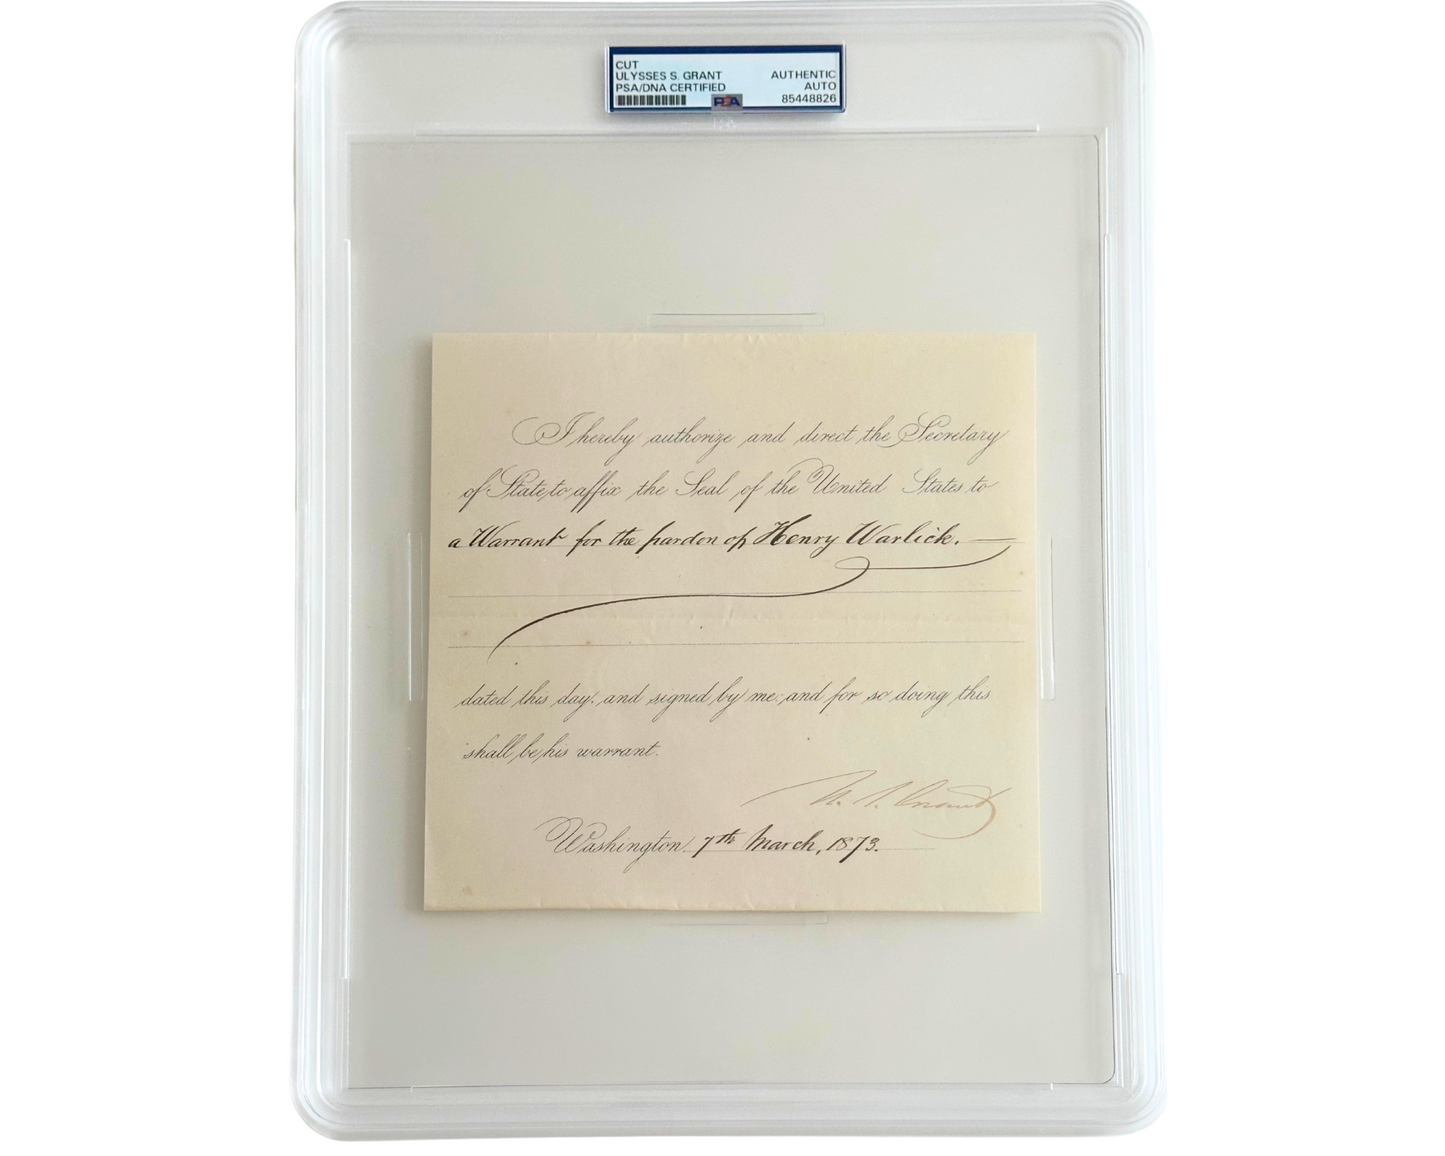 CUT
ULYSSES S. GRANT
PSA/DNA CERTIFIED
AUTHENTIC
AUTO
85448826
PSA
I hereby authorize and direct the Secretary
of State to affix the Seal of the United States to
a Warrant for the pardon of Henry Warlick.
dated this day, and signed by me: and for so doing this
shall be his warrant.
U. S. Grant
Washington 7th March, 1873.